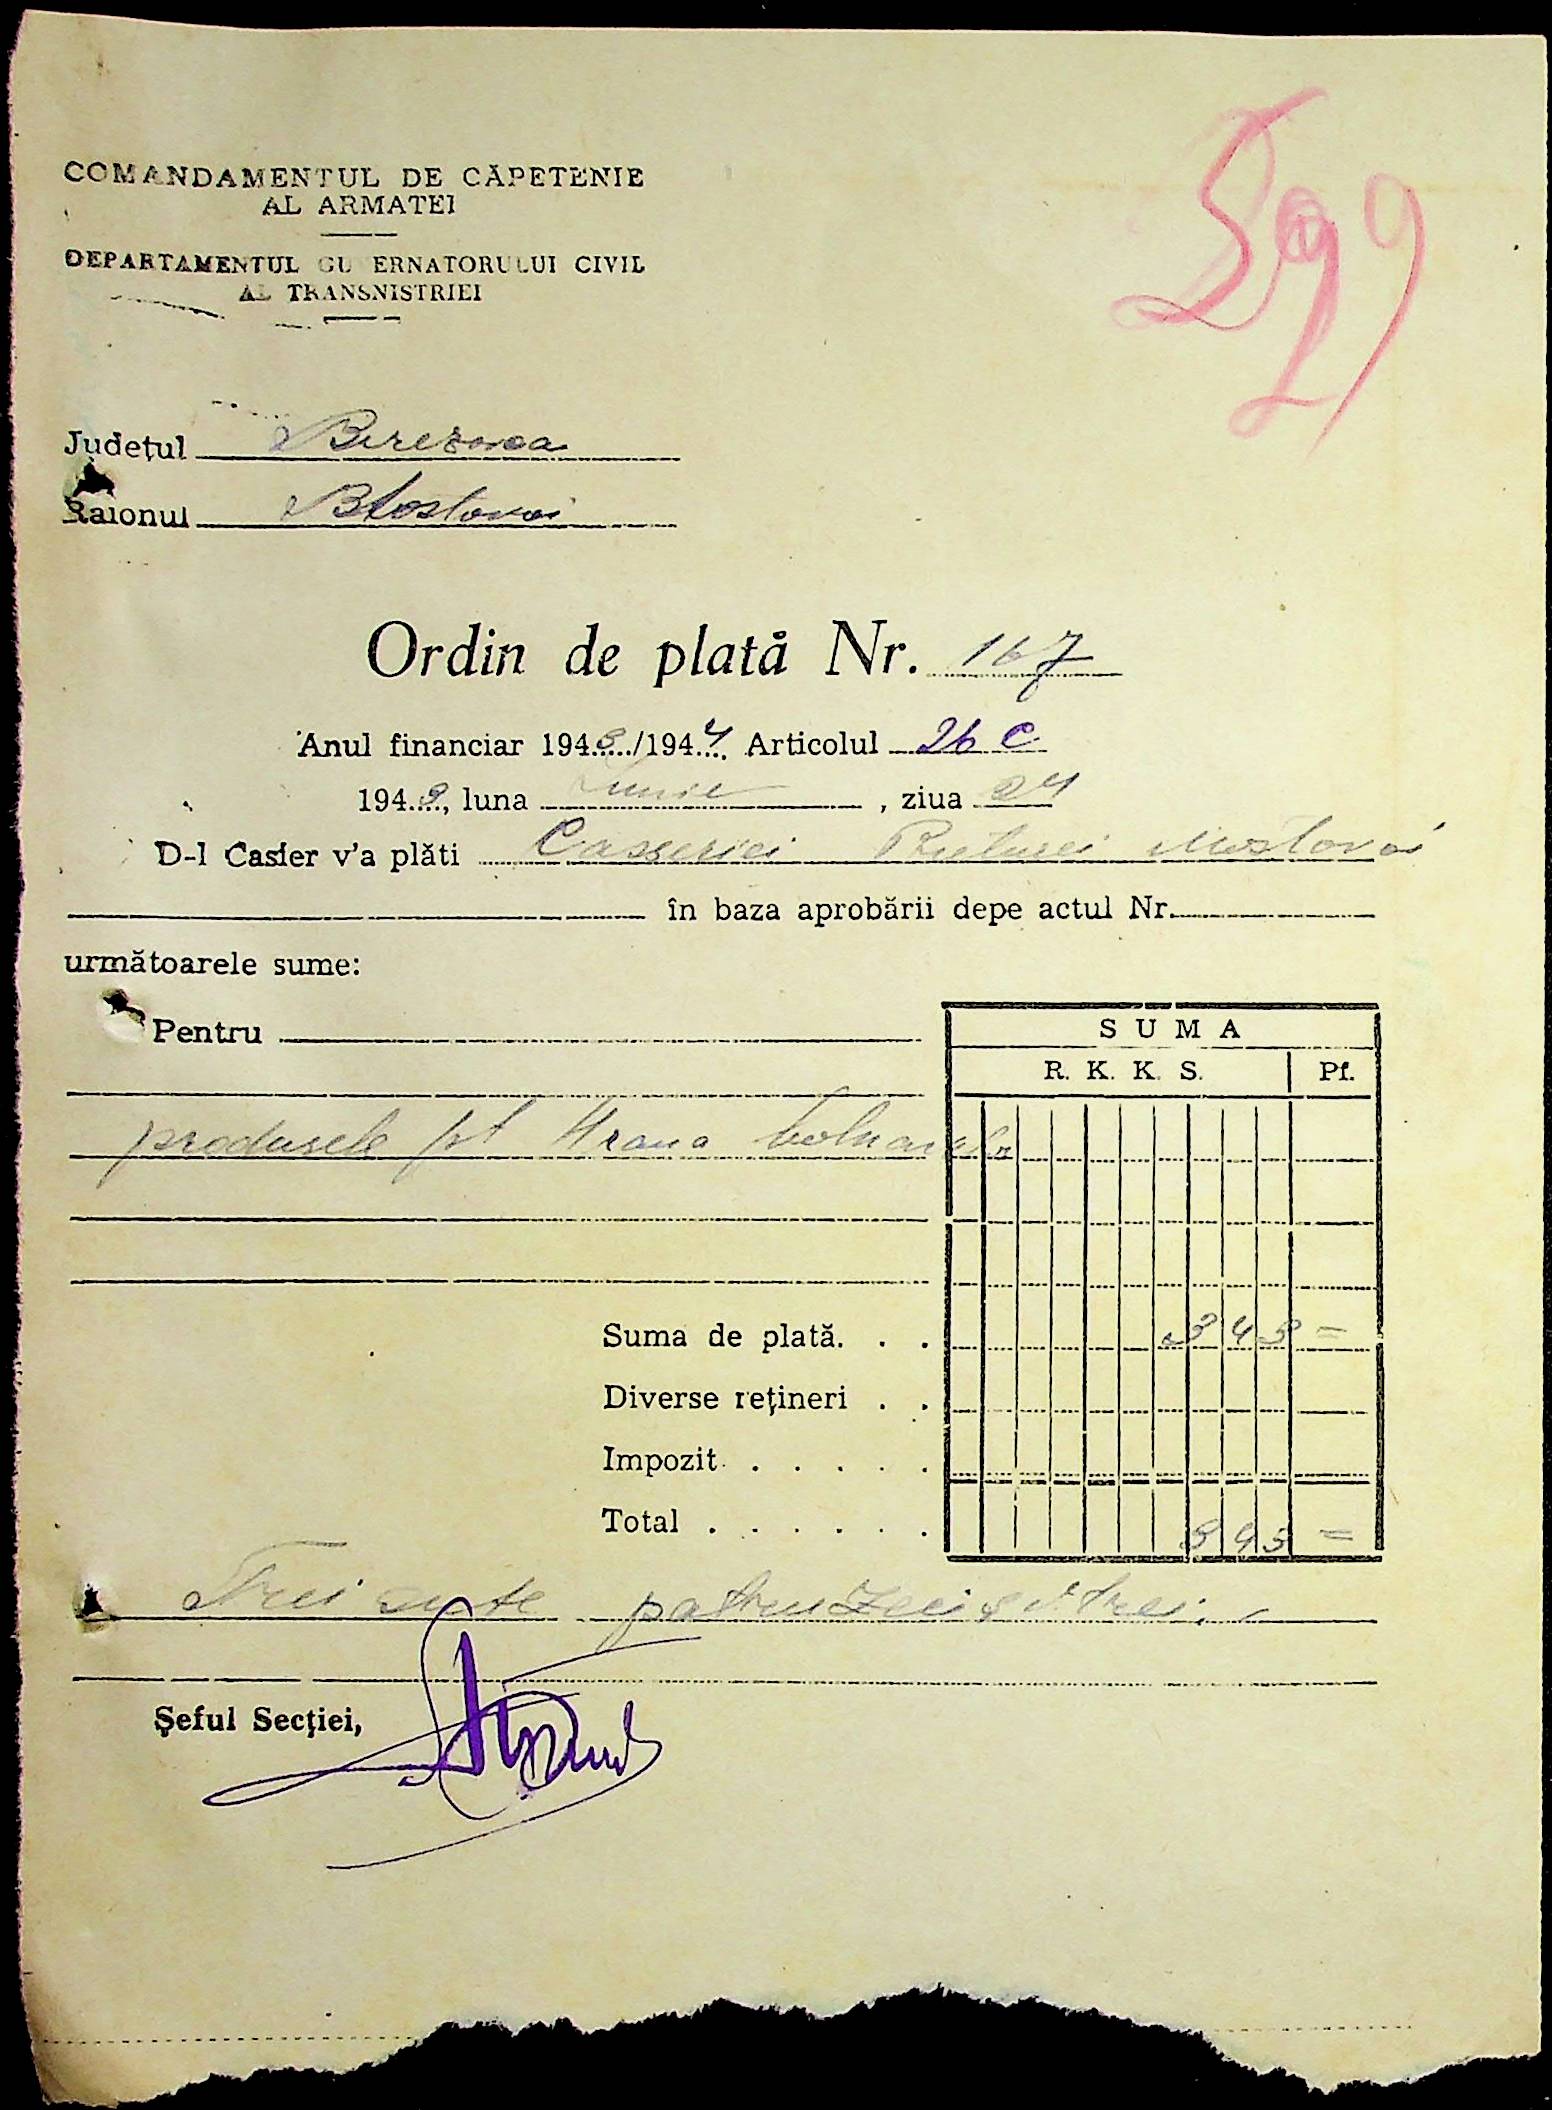 599
COMANDAMENTUL DE CĂPETENIE
AL ARMATEI
DEPARTAMENTUL GU ERNATORULUI CIVIL
AL TRANSNISTRIEI
Județul Berezovca
Raionul Mostovoi
Ordin de plată Nr. 167
Anul financiar 1943/1944 Articolul 26 C
1943, luna Iunie, ziua 24
D-l Casier v'a plăti Casseriei Preturei Mostovoi
în baza aprobării depe actul Nr.
următoarele sume:
Pentru
SUMA
R. K. K. S. Pf.
produsele pt Hrana bolnavilor
Suma de plată. . . 343 =
Diverse rețineri . .
Impozit . . . . .
Total . . . . . . 343 =
Trei sute patruzeci și trei.
Șeful Secției,